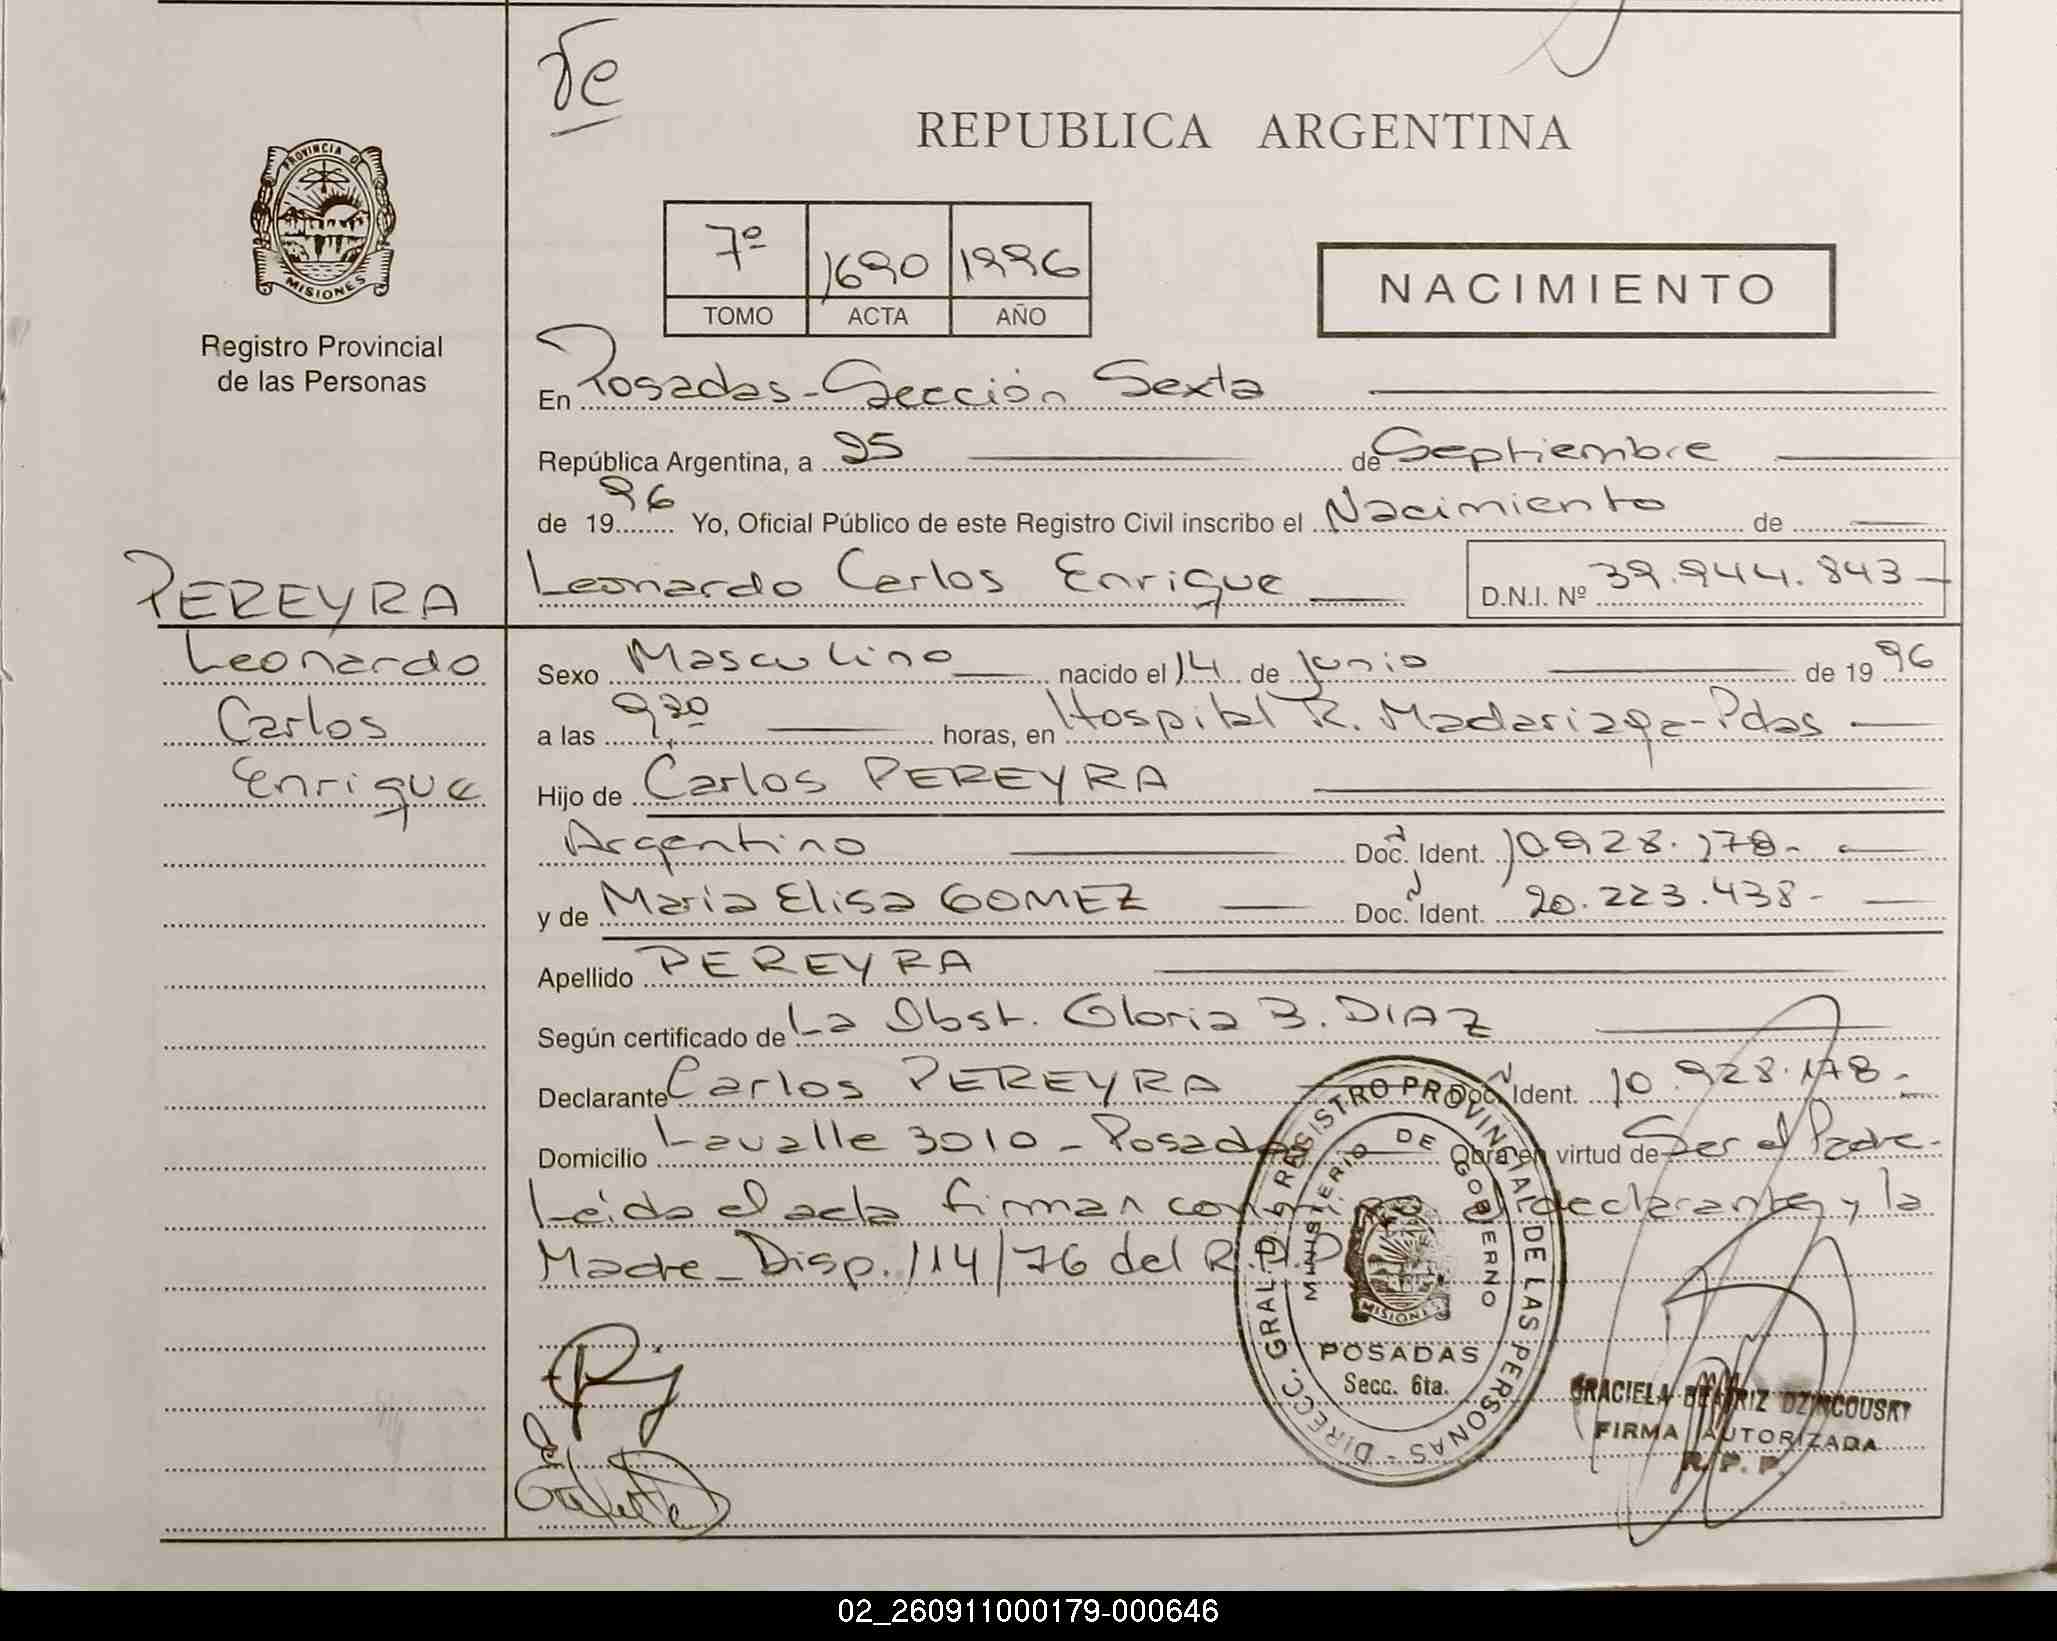 REPUBLICA ARGENTINA
PROVINCIA D
MISIONES
Registro Provincial
de las Personas
7º 1690 1996
TOMO ACTA AÑO
NACIMIENTO
En Posadas - Sección Sexta
República Argentina, a 25 de Septiembre
de 1996 Yo, Oficial Público de este Registro Civil inscribo el Nacimiento de
PEREYRA Leonardo Carlos Enrique D.N.I. Nº 39.944.843
Leonardo
Carlos
Enrique
Sexo Masculino nacido el 14 de Junio de 1996
a las 9,20 horas, en Hospital R. Madariaga - Pdas
Hijo de Carlos PEREYRA
Argentino Doc. Ident. 10.928.178.
y de Maria Elisa GOMEZ Doc. Ident. 20.223.438 -
Apellido PEREYRA
Según certificado de La Obst. Gloria B. DIAZ
Declarante Carlos PEREYRA Doc. Ident. 10.928.178 -
Domicilio Lavalle 3010 - Posadas Obra en virtud de Ser el Padre -
Leída el acta firman conmigo el declarante y la
Madre - Disp. 114/76 del R.P.P
DIRECC. GRAL. D. REGISTRO PROVINCIAL DE LAS PERSONAS -
MINISTERIO DE GOBIERNO
MISIONES
POSADAS
Secc. 6ta.
GRACIELA BEATRIZ DZINCOUSKY
FIRMA AUTORIZADA
R. P. P.
02_260911000179-000646